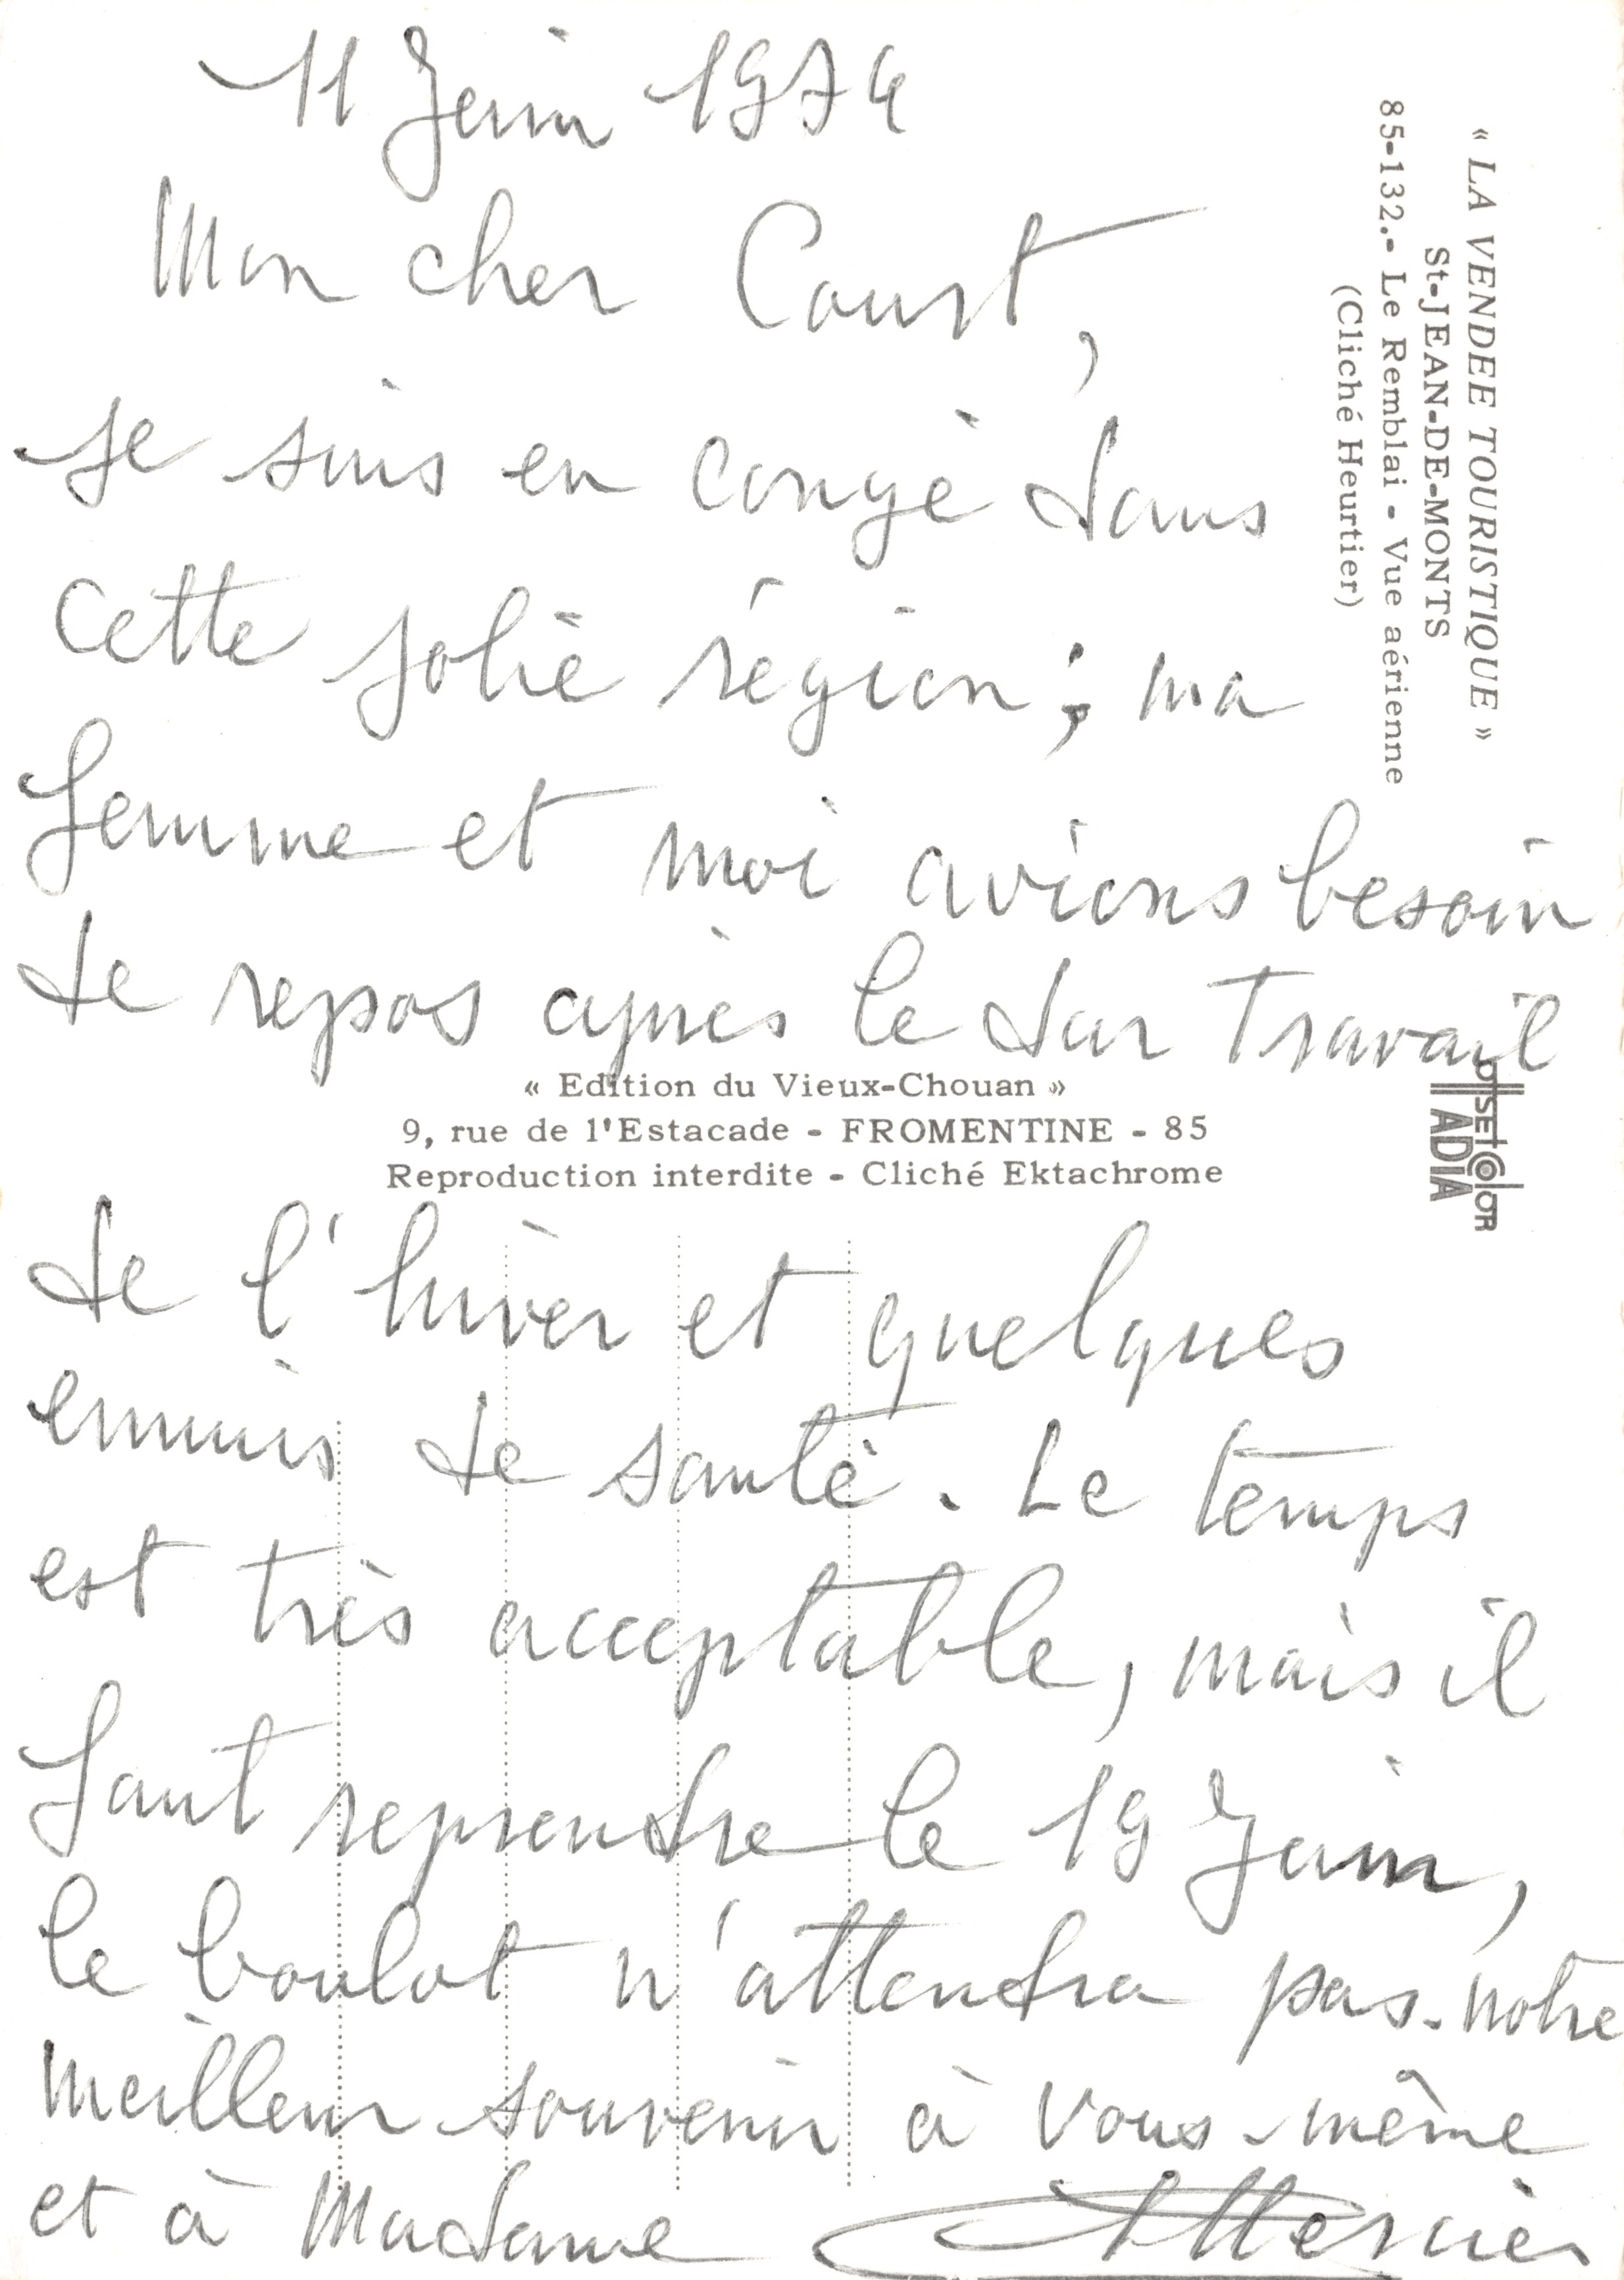 11 Juin 1974
Mon cher Coust,
je suis en congé dans
cette jolie région ; ma
femme et moi avions besoin
de repos après le dur travail
de l'hiver et quelques
ennuis de santé. Le temps
est très acceptable, mais il
faut reprendre le 19 Juin,
le boulot n'attendra pas. Notre
meilleur souvenir à vous-même
et à Madame
« LA VENDEE TOURISTIQUE »
St-JEAN-DE-MONTS
85-132.- Le Remblai - Vue aérienne
(Cliché Heurtier)
« Edition du Vieux-Chouan »
9, rue de l'Estacade - FROMENTINE - 85
Reproduction interdite - Cliché Ektachrome
OFSETCOLOR
ADIA